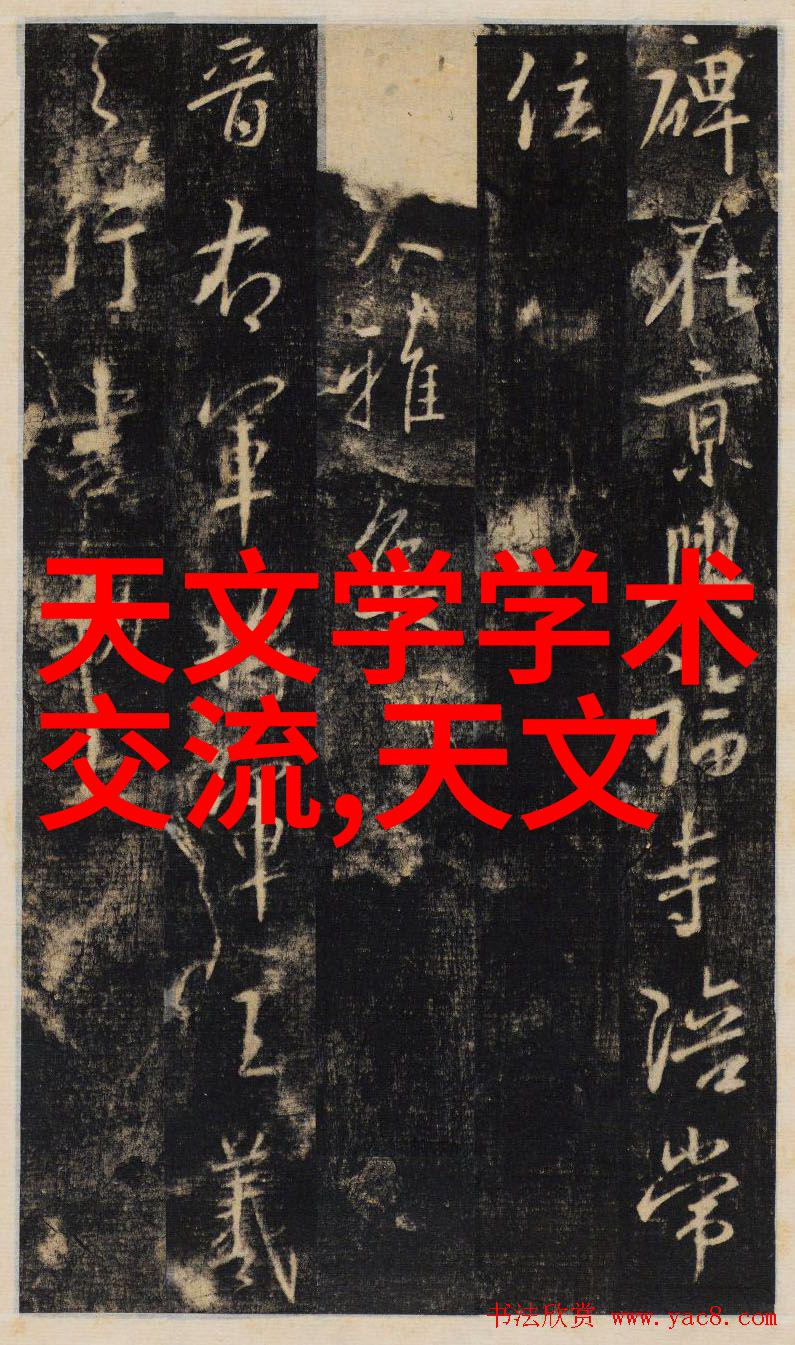 碑在京興福寺陪常
住
大雅集
晉右軍將軍王羲
之行書勒上
天文学学术
交流,天文
书法欣赏 www.yac8.com